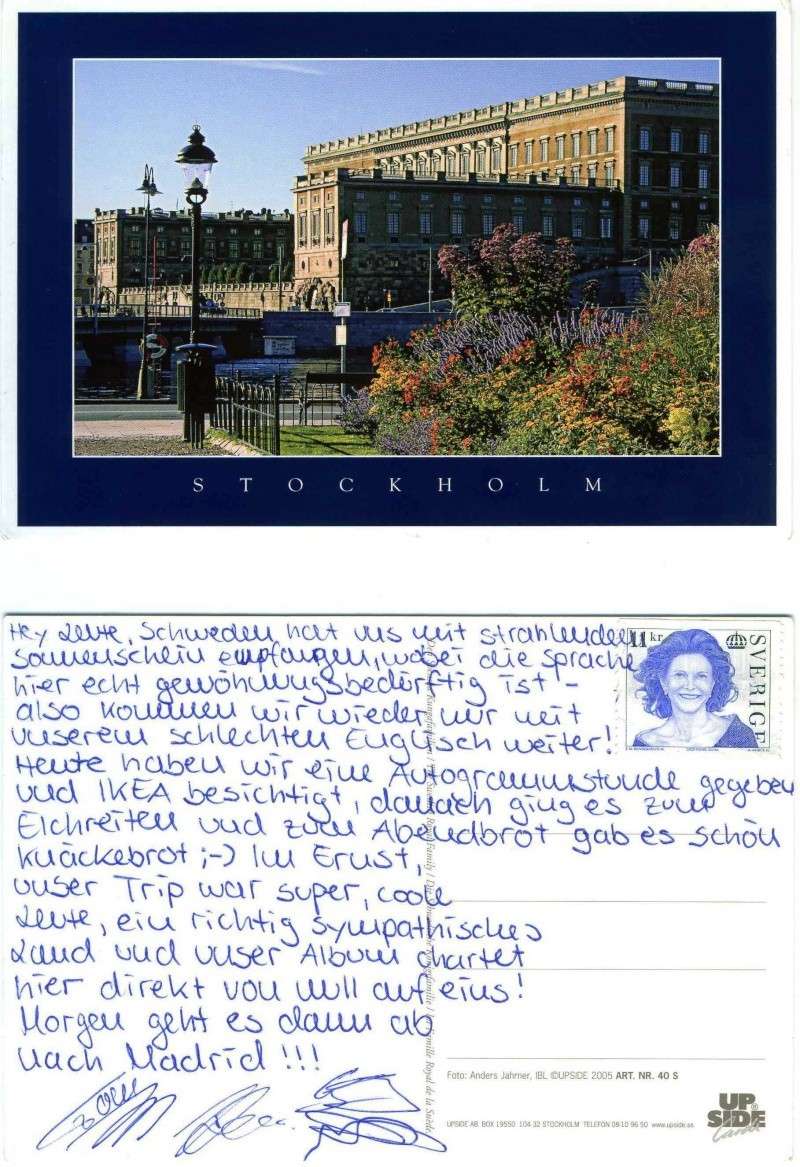 STOCKHOLM
Hey Leute, Schweden hat uns mit strahlenden
Sonnenschein empfangen, wobei die Sprache
hier echt gewöhnungsbedürftig ist -
also kommen wir wieder nur mit
unserem schlechten Englisch weiter!
Heute haben wir eine Autogrammstunde gegeben
und IKEA besichtigt, danach ging es zum
Elchreiten und zum Abendbrot gab es schön
Knäckebrot ;-) Im Ernst,
unser Trip war super, coole
Leute, ein richtig sympathisches
Land und unser Album chartet
hier direkt von null auf eins!
Morgen geht es dann ab
nach Madrid!!!
11 kr
SVERIGE
Foto: Anders Jahrner, IBL ©UPSIDE 2005 ART. NR. 40 S
UPSIDE AB BOX 19550 104 32 STOCKHOLM TELEFON 08-10 96 50 www.upside.se
UP
SIDE
Cards